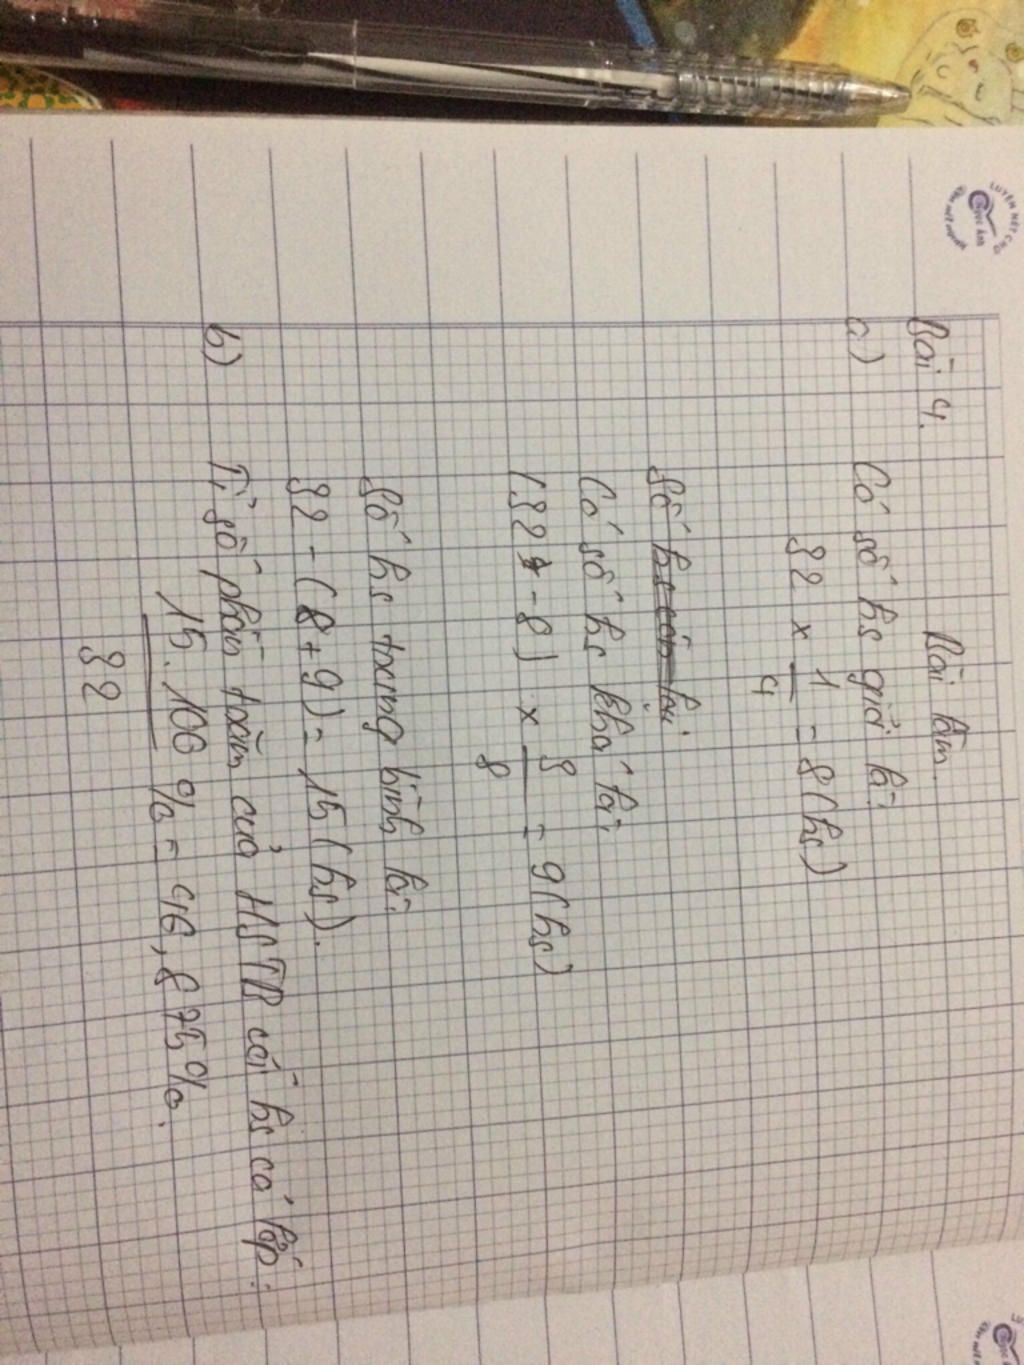 LUYỆN NÉT CHỮ
Ngọc Ánh
Rèn nết người
Bài 4.
Bài làm.
a) Có số hs giỏi là:
32 x 1/4 = 8 (hs)
Số hs còn lại:
Có số hs khá là:
(32 - 8) x 3/8 = 9 (hs)
Số hs trung bình là:
32 - (8 + 9) = 15 (hs).
b) Tỉ số phần trăm của HSTB với hs cả lớp:
15.100/32 % = 46,875%.